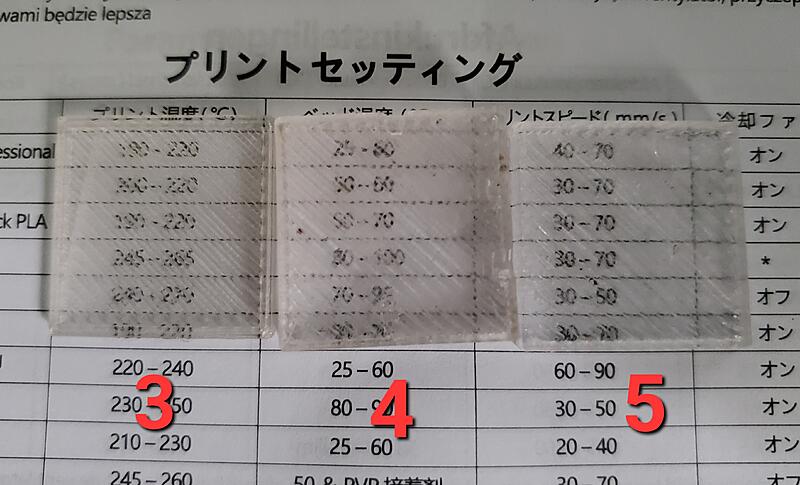 wami będzie lepsza
プリントセッティング
プリント温度(℃) ベッド温度 リントスピード( mm/s) 冷却ファ
essional 190-220 25-60 40-70 オン
200-220 50-60 30-70 オン
ck PLA 190-220 50-70 30-70 オン
245-265 80-100 30-70 *
240-270 70-95 30-50 オフ
オン
220-240 25-60 60-90 オン
30-50 オン
210-230 25-60 20-40 オン
245-260 50 & PVP 接着剤 30-70 オフ
3 4 5